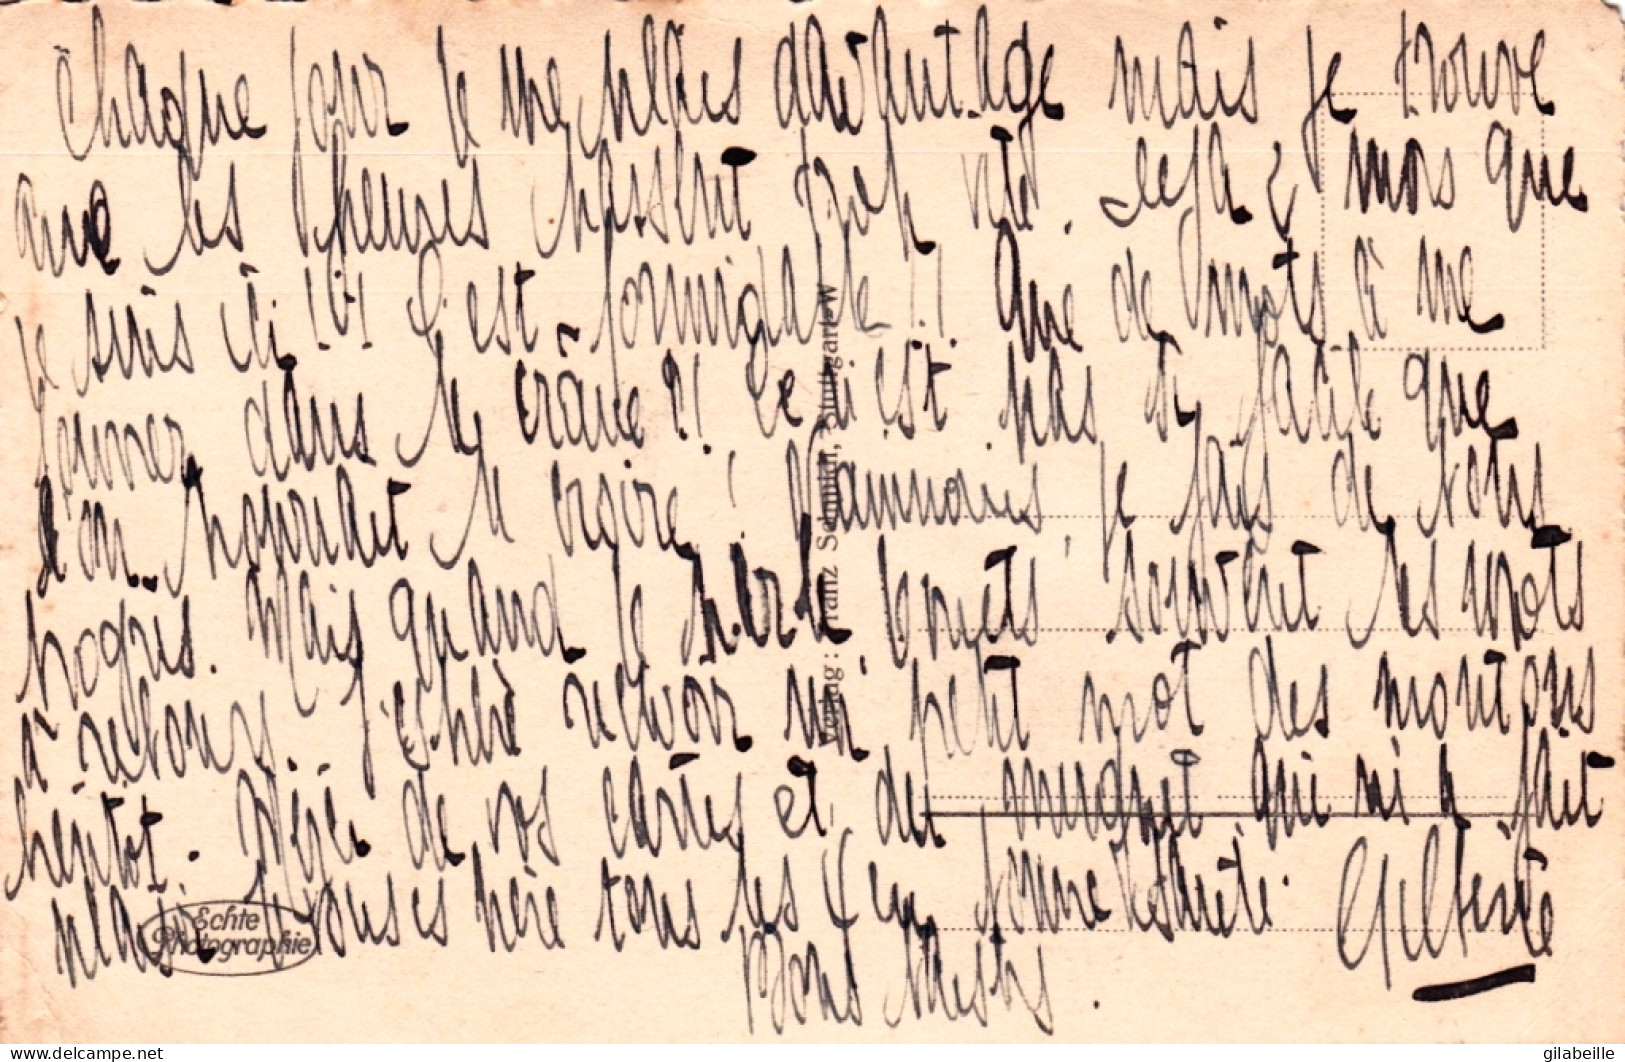 Chaque jour je me plais davantage mais je trouve
que les heures passent trop vite. Déjà 2 mois que
je suis ici !! C'est formidable !! Que de mots à me
fourrer dans le crâne ?! Ce n'est pas si facile que
l'on pourrait le croire ! Néanmoins, je fais de nets
progrès. Mais quand je parle, vite souvent les mots
à retenir. J'espère recevoir un petit mot des moutons
bientôt. Merci de vos cartes et du muguet qui m'a fait
plaisir. Je vous espère tous les 4 en bonne santé. Gilberte
Bons baisers.
Verlag: Franz Schmidt, Stuttgart-W
Echte
Photographie
gilabeille